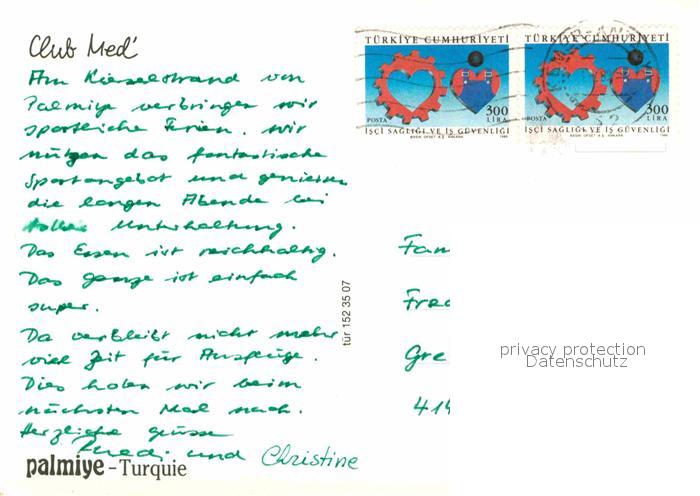 Club Med'
Am Kieselstrand von
Palmiye verbringen wir
sportliche Ferien. Wir
nützen das fantastische
Sportangebot und geniessen
die langen Abende bei
toller Unterhaltung.
Das Essen ist reichhaltig.
Das ganze ist einfach
super.
Da verbleibt nicht mehr
viel Zeit für Ausflüge.
Dies holen wir beim
nächsten Mal nach.
Herzliche Grüsse
Fredi und Christine
palmiye - Turquie
tür 152 35 07
TÜRKİYE CUMHURİYETİ
POSTA
300
LİRA
İŞÇİ SAĞLIĞI VE İŞ GÜVENLİĞİ
TÜRKİYE CUMHURİYETİ
POSTA
300
LİRA
İŞÇİ SAĞLIĞI VE İŞ GÜVENLİĞİ
Fam
Fred
Gre
414
privacy protection
Datenschutz